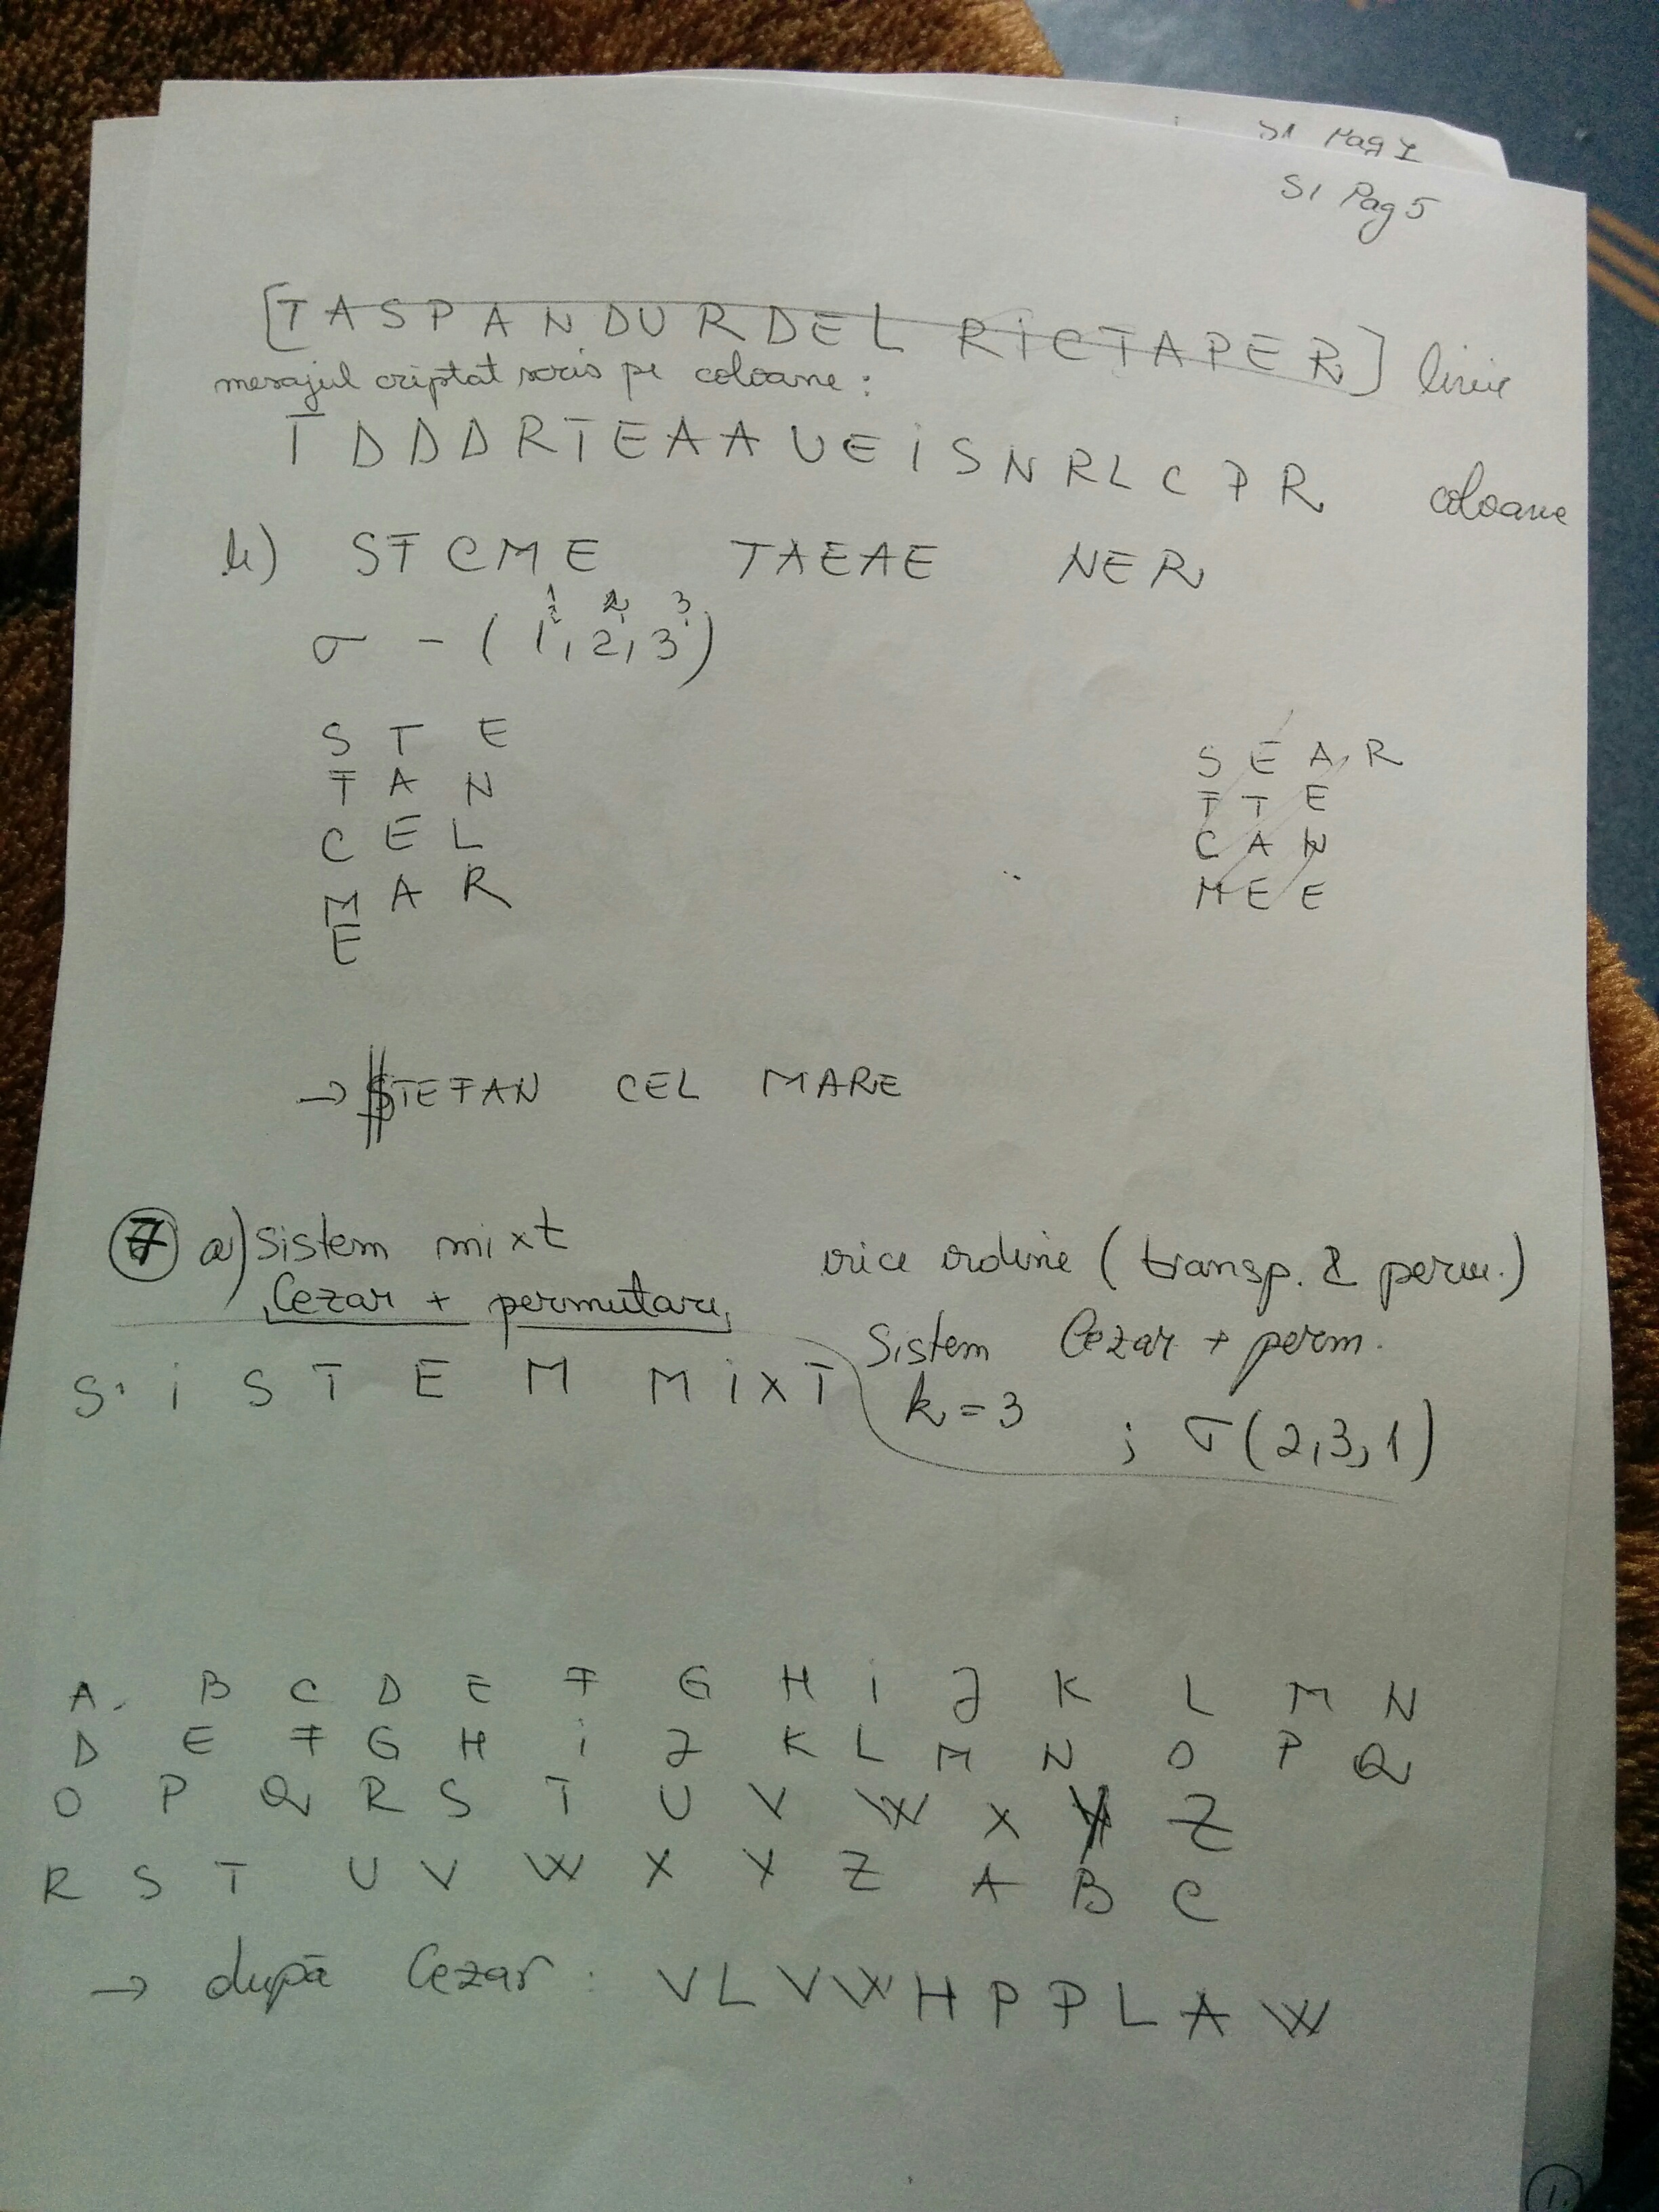 S1 Pag 7
S1 Pag 5
[TASPANDURDEL RICTAPER] linie
mesajul criptat scris pe coloane:
TDDDRTEAAUEISNRLCPR coloane
b) STCME TAEAE NER
1 2 3
σ - (1, 2, 3)
S T E
T A N
C E L
M A R
E
S E A R
T T E
C A N
M E E
→ STEFAN CEL MARE
7 a) Sistem mixt
Cezar + permutare
orice ordine (transp. & perm.)
Sistem Cezar + perm.
k = 3 ; σ(2,3,1)
S I S T E M M I X T
A B C D E F G H I J K L M N
D E F G H I J K L M N O P Q
O P Q R S T U V W X Y Z
R S T U V W X Y Z A B C
→ după Cezar: VLVWHPPLAW